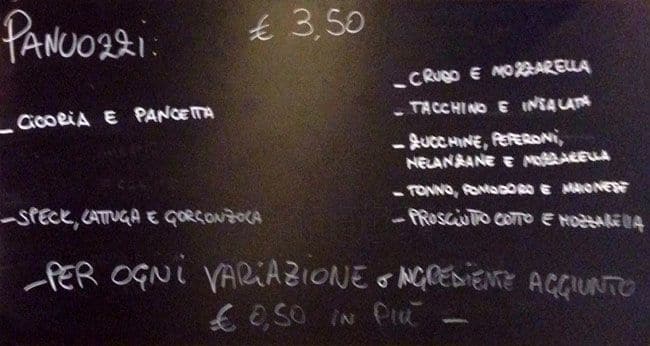 PANUOZZI:
€ 3,50
- CICORIA E PANCETTA
- SPECK, LATTUGA E GORGONZOLA
- CRUDO E MOZZARELLA
- TACCHINO E INSALATA
- ZUCCHINE, PEPERONI,
MELANZANE E MOZZARELLA
- TONNO, POMODORO E MAIONESE
- PROSCIUTTO COTTO E MOZZARELLA
- PER OGNI VARIAZIONE O INGREDIENTE AGGIUNTO
€ 0,50 IN PIÙ -